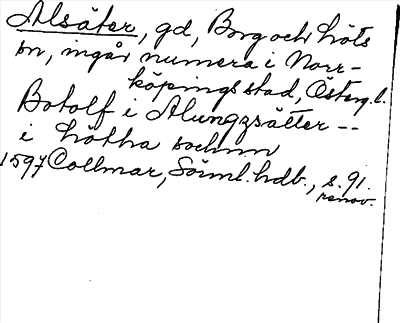 Alsäter, gd, Borg och Löts
sn, ingår numera i Norr-
köpings stad, Österg. l.
Botolf i Alungzsätter --
i Lötha sochnn
1597 Collmar, Söiml. hdb., s. 91.
renov.